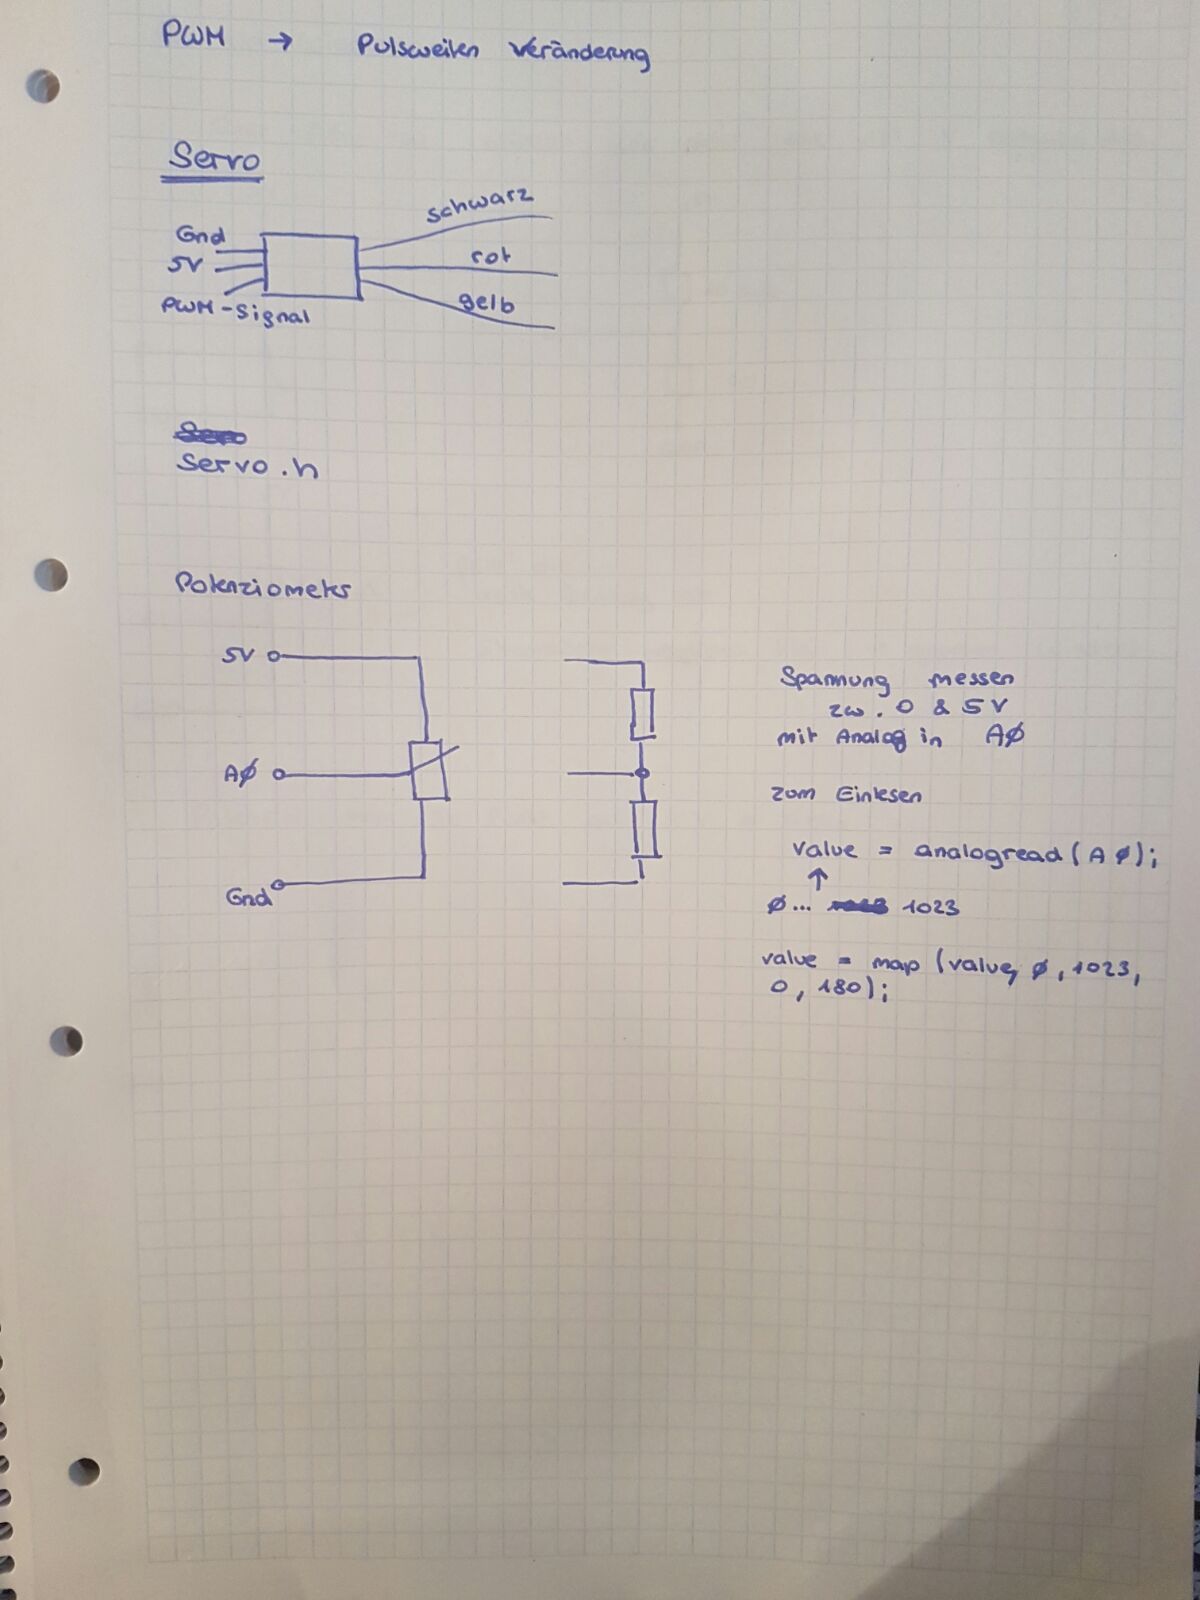 PWM → Pulsweiten Veränderung
Servo
schwarz
Gnd
rot
5V
gelb
PWM-Signal
Servo.h
Potenziometer
5V
AØ
Gnd
Spannung messen
zw. 0 & 5V
mit Analog in AØ
zum Einlesen
value = analogread(AØ);
↑
Ø... 1023
value = map (value, Ø, 1023,
0, 180);